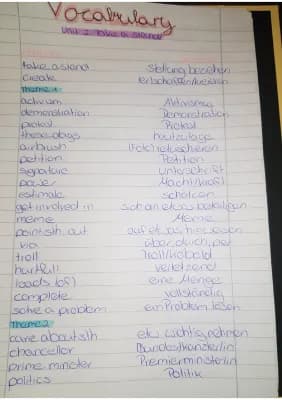 Vocabulary
Unit 2 Take a stand
take a stand Stellung beziehen
create erschaffen/kreieren
Theme 1
activism Aktivismus
demonstration Demonstration
protest Protest
these days heutzutage
airbrush (Foto) retuschieren
petition Petition
signature Unterschrift
power Macht/Kraft
estimate schätzen
get involved in sich an etwas beteiligen
meme Meme
point sth. out auf etwas hinweisen
via über, durch, per
troll Troll/Kobold
hurtfull verletzend
loads (of) eine Menge
complete vollständig
solve a problem ein Problem lösen
Theme 2
care about sth etw. wichtig nehmen
chancellor Bundeskanzler/in
prime minister Premierminister/in
politics Politik